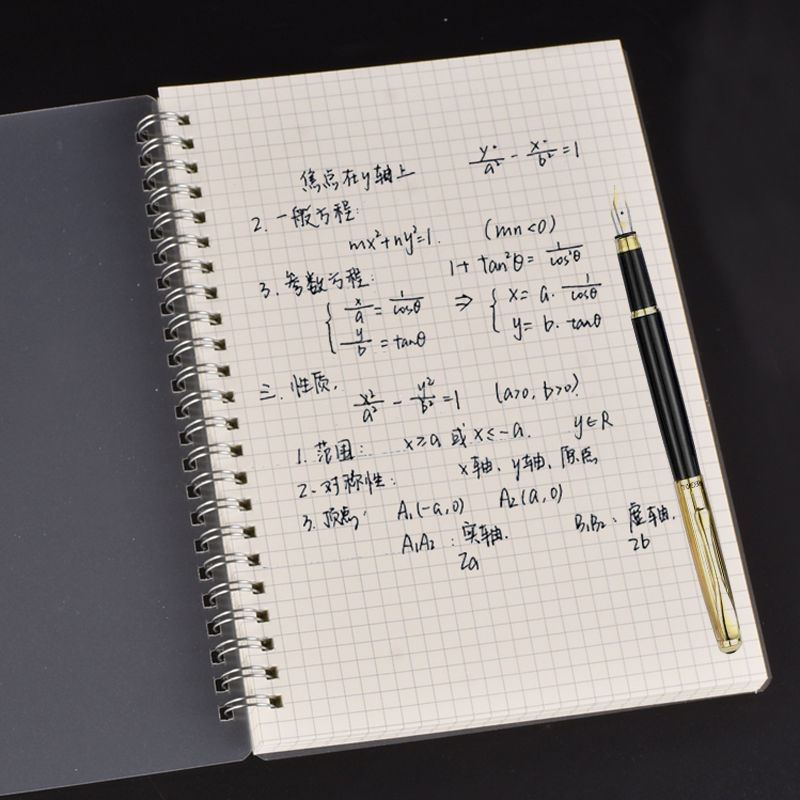 焦点在y轴上 y²/a² - x²/b² = 1
2. 一般方程:
mx²+ny²=1. (mn<0)
1+tan²θ = 1/cos²θ
3. 参数方程:
{ x/a = 1/cosθ ⇒ { x = a · 1/cosθ
y/b = tanθ y = b · tanθ
三. 性质. x²/a² - y²/b² = 1 (a>0, b>0)
1. 范围: x≥a 或 x≤-a. y∈R
2. 对称性: x轴、y轴、原点
3. 顶点: A₁(-a,0) A₂(a,0)
A₁A₂: 实轴. B₁B₂: 虚轴.
2a 2b